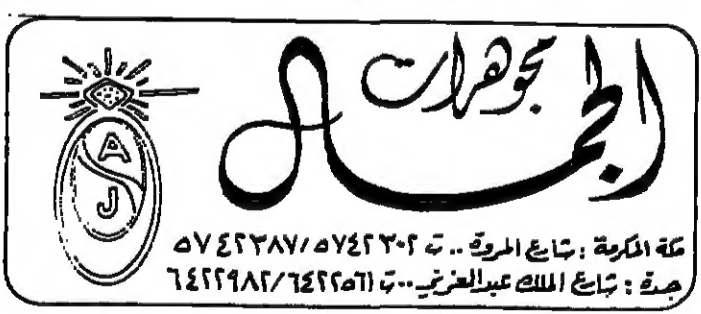 مجوهرات
الجمال
AJ
مكة المكرمة : شارع المروة .. ت ٥٧٤٢٣٠٢ / ٥٧٤٢٣٨٧
جدة : شارع الملك عبدالعزيز .. ت ٦٤٢٢٥٦١ / ٦٤٢٢٩٨٢